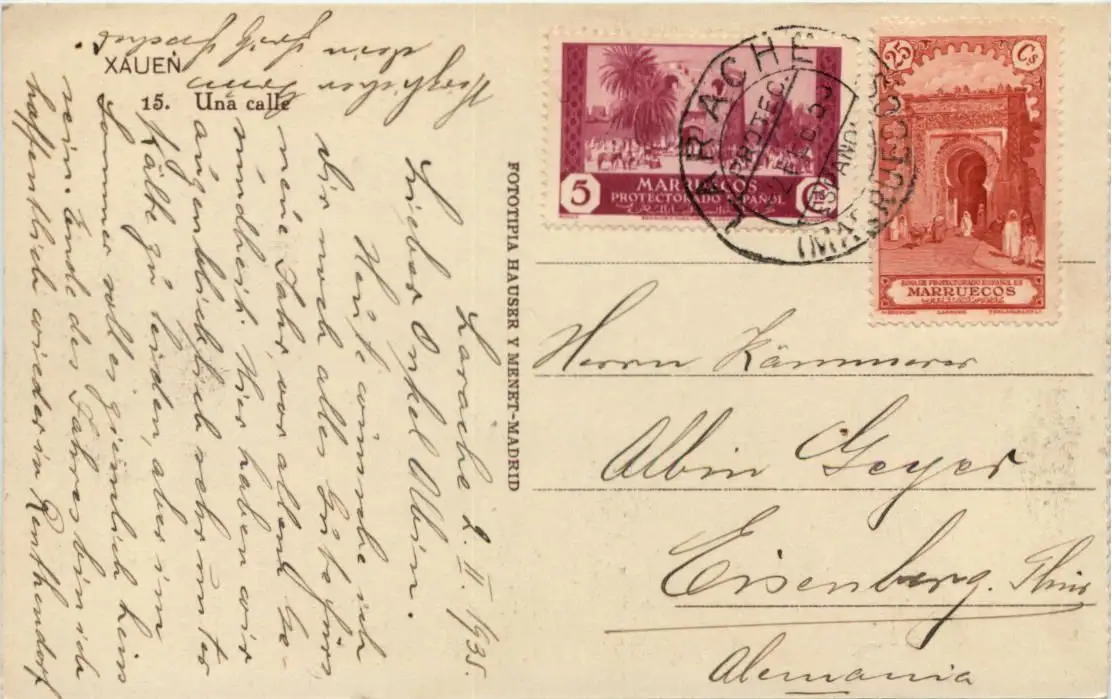 XAUEN
15. Una calle
FOTOTIPIA HAUSER Y MENET-MADRID
Larache 2. II. 1935.
Lieber Onkel Albin.
Heute wünsche ich
dir noch alles Gute fürs
neue Jahr, vor allem Ge-
sundheit. Hier haben wir
augenblicklich sehr unter
Kälte zu leiden, aber im
Sommer soll es ziemlich heiss
sein. Ende des Jahres bin ich
hoffentlich wieder in Renthendorf
dein
5
MARRUECOS
PROTECTORADO ESPAÑOL
Cts
LARACHE
PROTEC.
ESPAÑOL
(MARRUECOS)
25 Cs
ZONA DE PROTECTORADO ESPAÑOL EN
MARRUECOS
Herrn Kämmerer
Albin Geyer
Eisenberg. Thür
Alemania